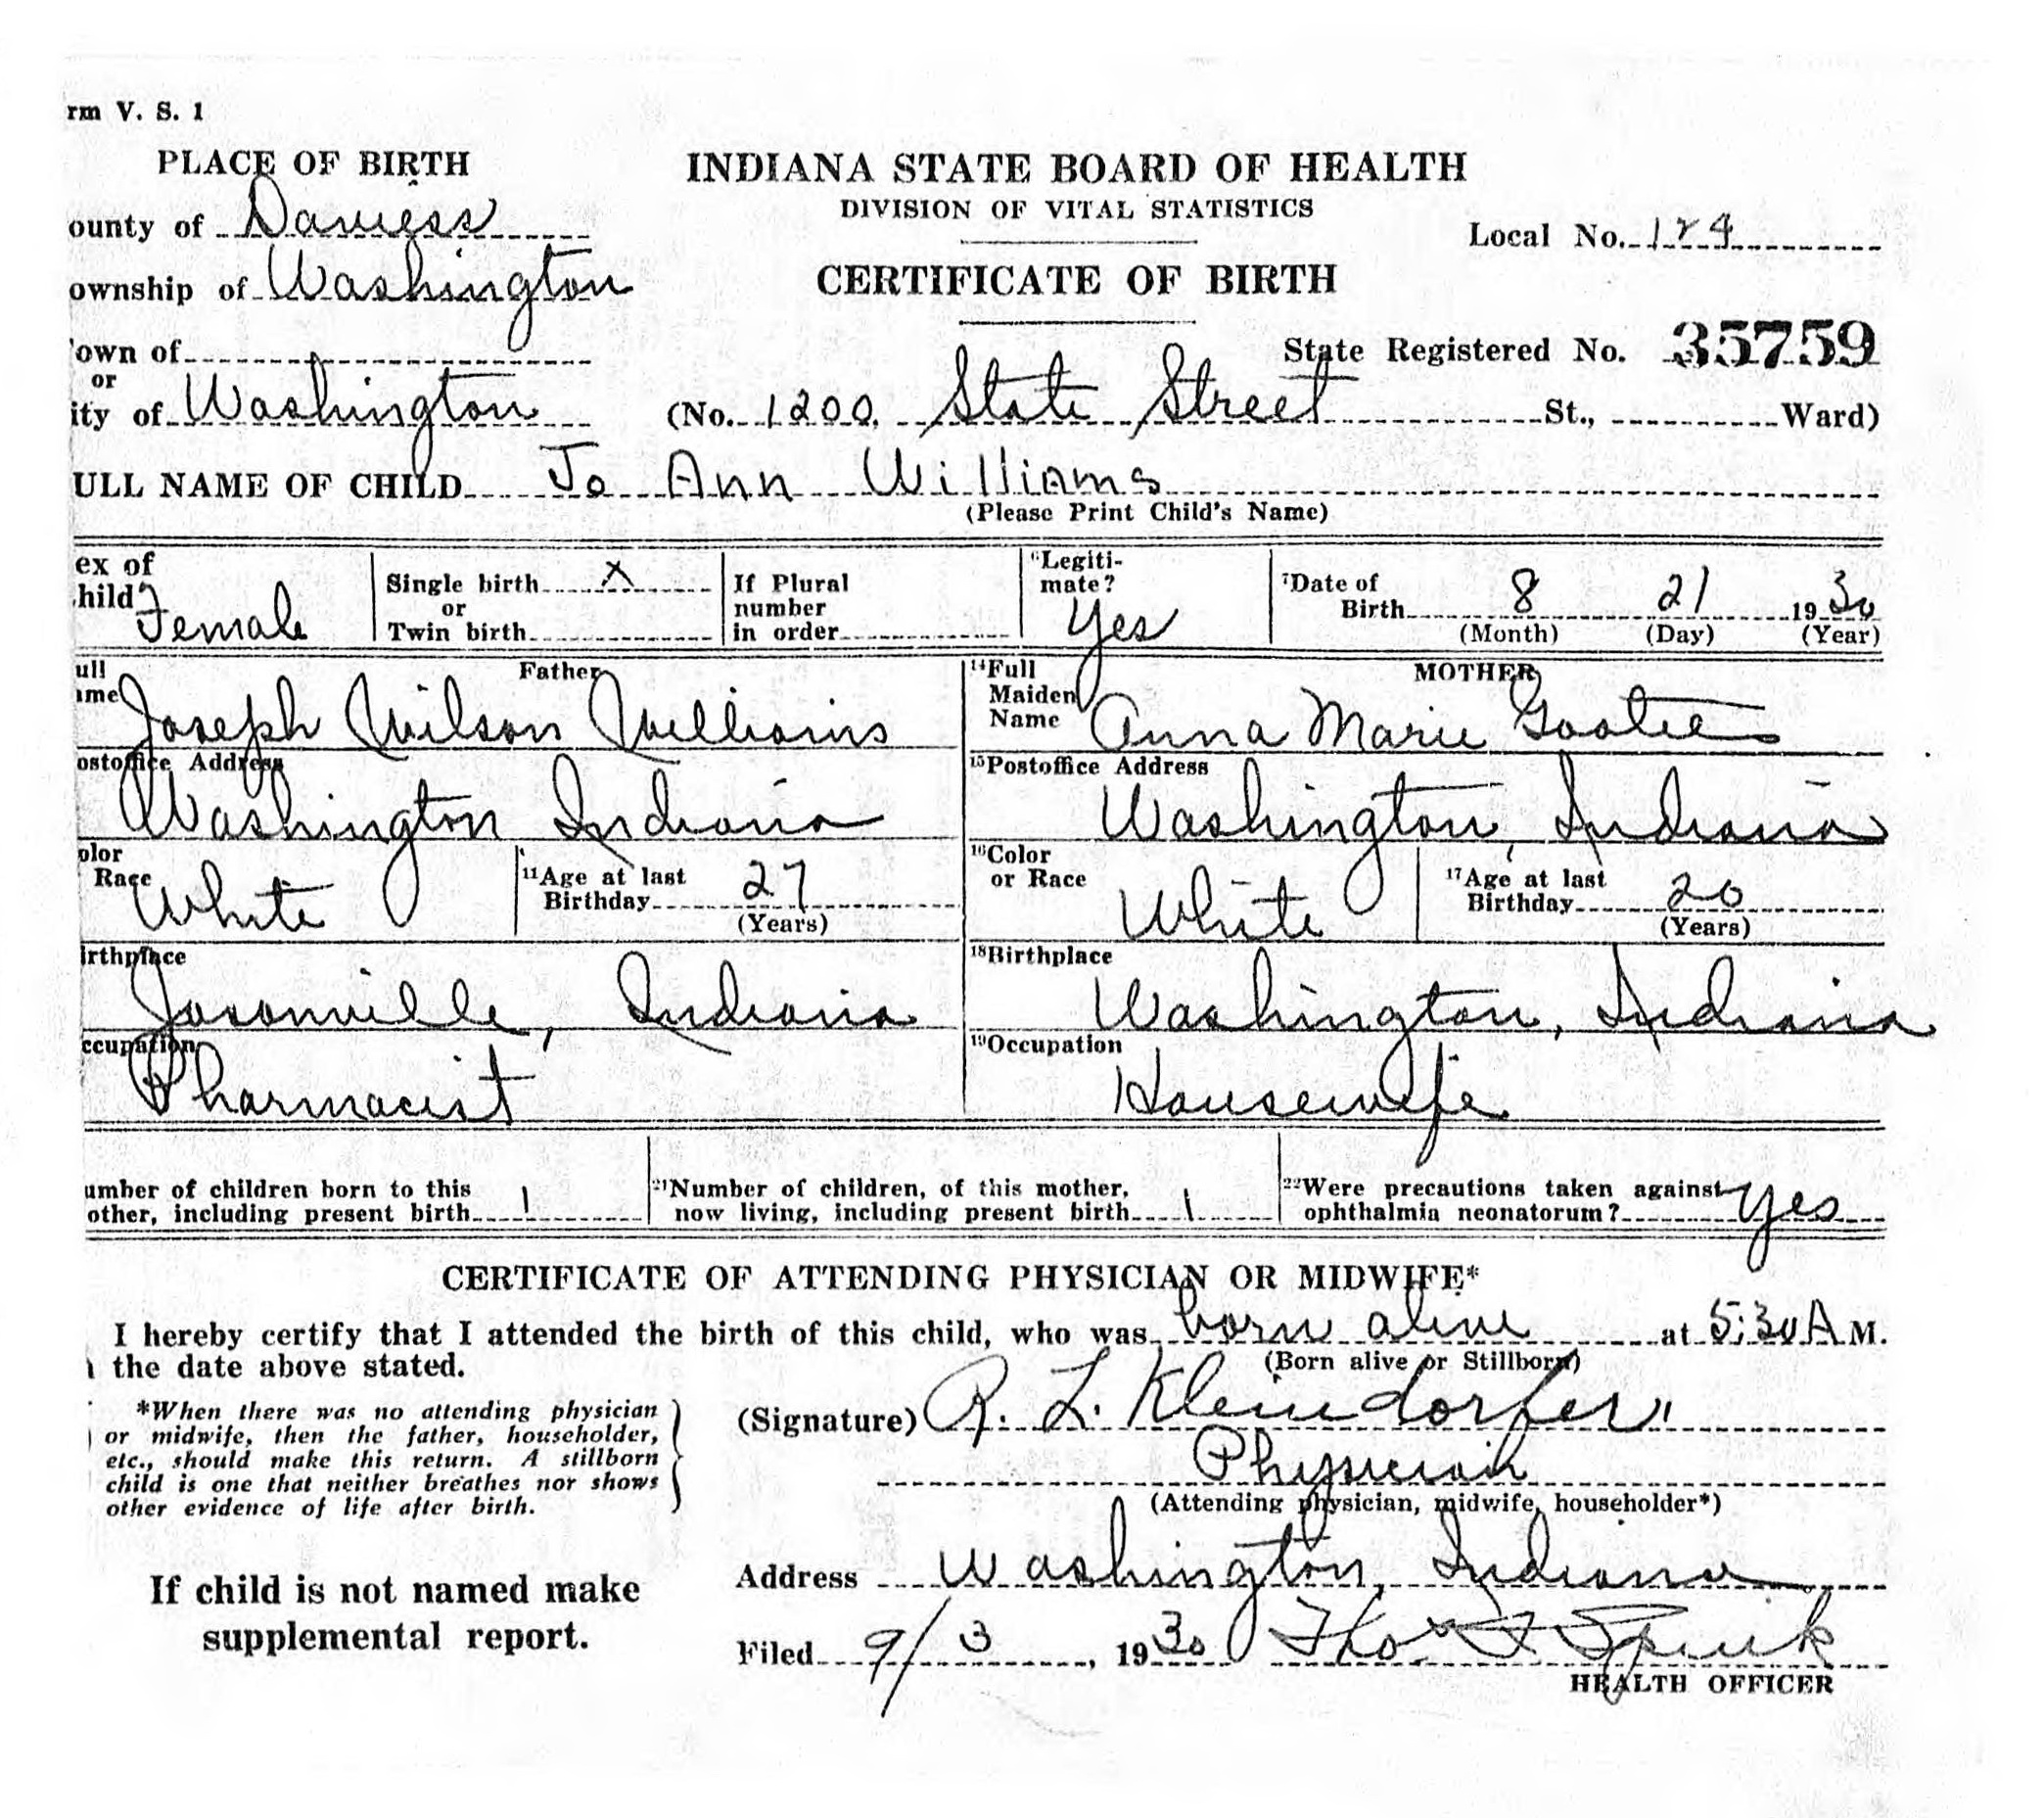 rm V. S. 1
PLACE OF BIRTH
INDIANA STATE BOARD OF HEALTH
DIVISION OF VITAL STATISTICS
ounty of Daviess
Local No. 124
ownship of Washington
CERTIFICATE OF BIRTH
own of
State Registered No. 35759
or
ity of Washington (No. 1200 State Street St., Ward)
ULL NAME OF CHILD Jo Ann Williams
(Please Print Child's Name)
ex of
hild Female
Single birth X
or
Twin birth
If Plural
number
in order
6Legiti-
mate?
Yes
7Date of
Birth 8 21 1930
(Month) (Day) (Year)
ull
ame
Father
Joseph Wilson Williams
14Full
Maiden
Name
MOTHER
Anna Marie Gootee
ostoffice Address
Washington Indiana
15Postoffice Address
Washington, Indiana
olor
Race White
11Age at last
Birthday 27
(Years)
16Color
or Race White
17Age at last
Birthday 20
(Years)
irthplace
Jasonville, Indiana
18Birthplace
Washington, Indiana
ccupation
Pharmacist
19Occupation
Housewife
umber of children born to this
other, including present birth 1
21Number of children, of this mother,
now living, including present birth 1
22Were precautions taken against
ophthalmia neonatorum? Yes
CERTIFICATE OF ATTENDING PHYSICIAN OR MIDWIFE*
I hereby certify that I attended the birth of this child, who was born alive at 5:30 A M.
the date above stated.
(Born alive or Stillborn)
*When there was no attending physician
or midwife, then the father, householder,
etc., should make this return. A stillborn
child is one that neither breathes nor shows
other evidence of life after birth.
(Signature) R. L. Kleindorfer
Physician
(Attending physician, midwife, householder*)
If child is not named make
supplemental report.
Address Washington, Indiana
Filed 9/3, 1930 Thos F
HEALTH OFFICER